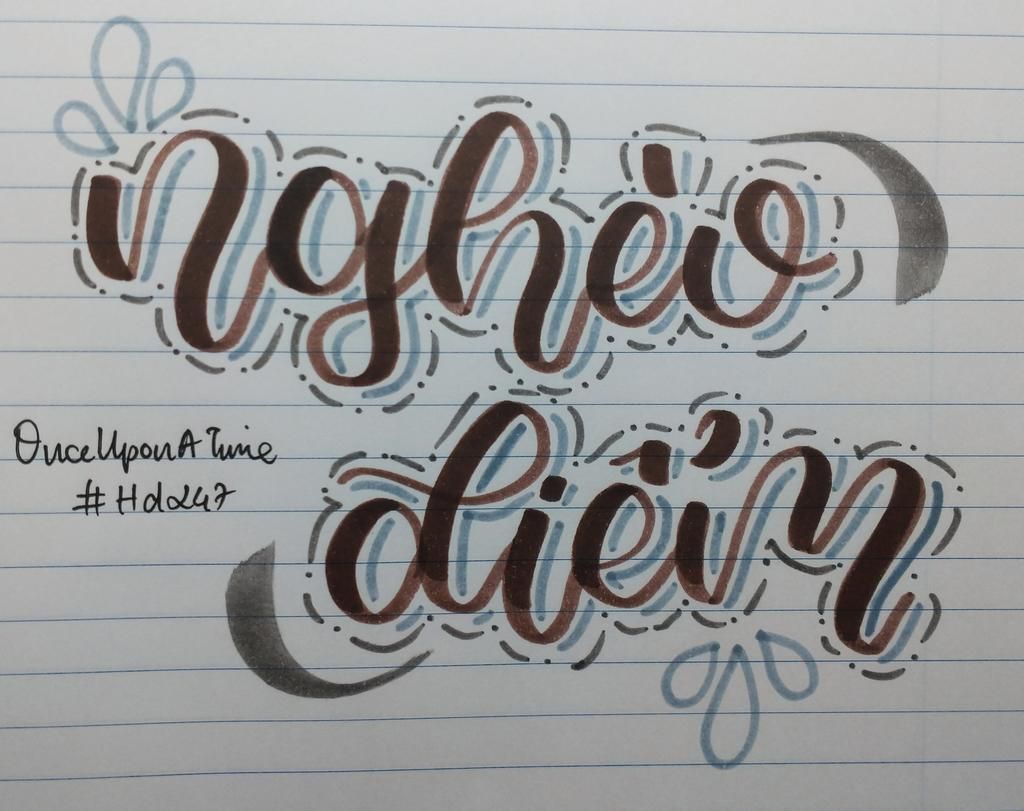 nghèo
điểm
OnceUponATime
#Hd247